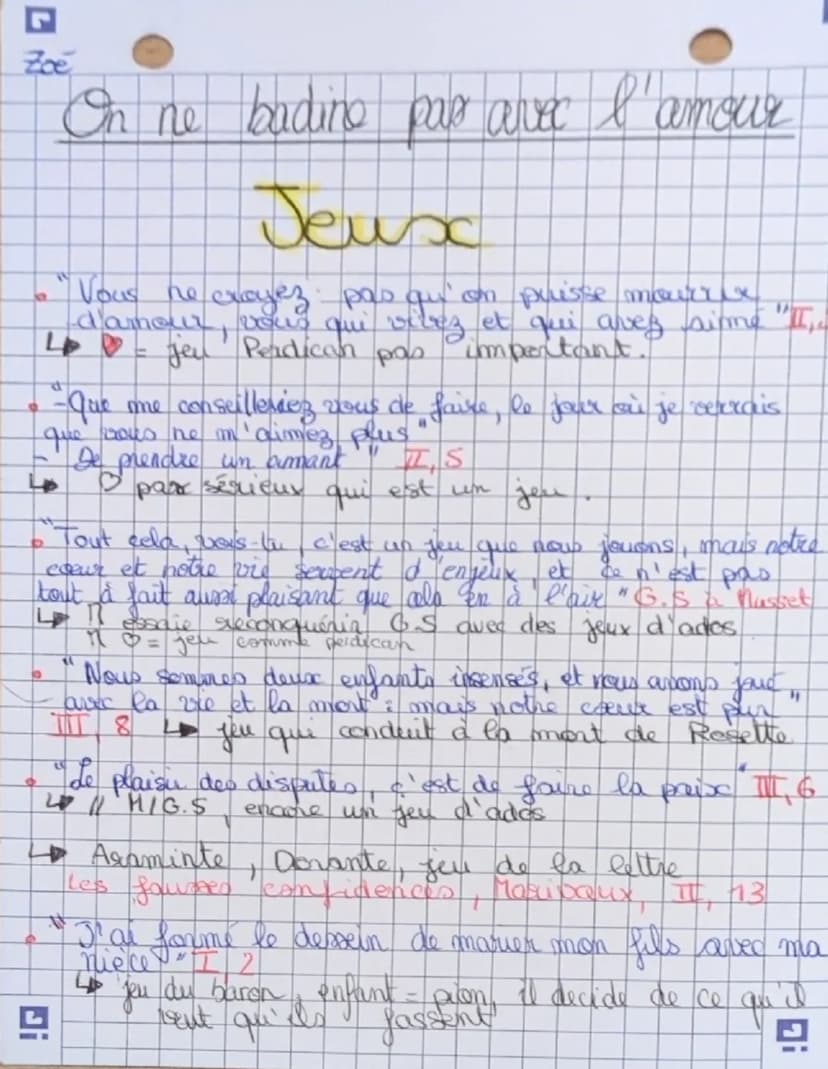 Zoé
On ne badine pas avec l'amour
Jeux
• "Vous ne croyez pas qu'on puisse mourir
d'amour, vous qui vivez et qui avez aimé" II,
↳ ♥ = jeu Perdican pas important.
• "-Que me conseilleriez vous de faire, le jour où je verrais
que vous ne m'aimez plus"
- De prendre un amant" II, 5
↳ ♡ pas sérieux qui est un jeu.
• "Tout cela, vois-tu, c'est un jeu que nous jouons, mais notre
cœur et notre vie servent d'enjeux, et ce n'est pas
tout à fait aussi plaisant que cela en à l'air" G.S à Musset
↳ essaie reconquérir G.S avec des jeux d'ados
♡ = jeu comme perdican
• "Nous sommes deux enfants insensés, et nous avons joué
avec la vie et la mort ; mais notre cœur est pur"
III, 8 ↳ jeu qui conduit à la mort de Rosette
• "Le plaisir des disputes, c'est de faire la paix" III, 6
↳ // M/G.S, encore un jeu d'ados
↳ Araminte, Dorante, jeu de la lettre
Les fausses confidences, Marivaux, II, 13
• "J'ai formé le dessein de marier mon fils avec ma
nièce" I, 2
↳ jeu du baron, enfant = pion, il decide de ce qu'il
veut qu'ils fassent